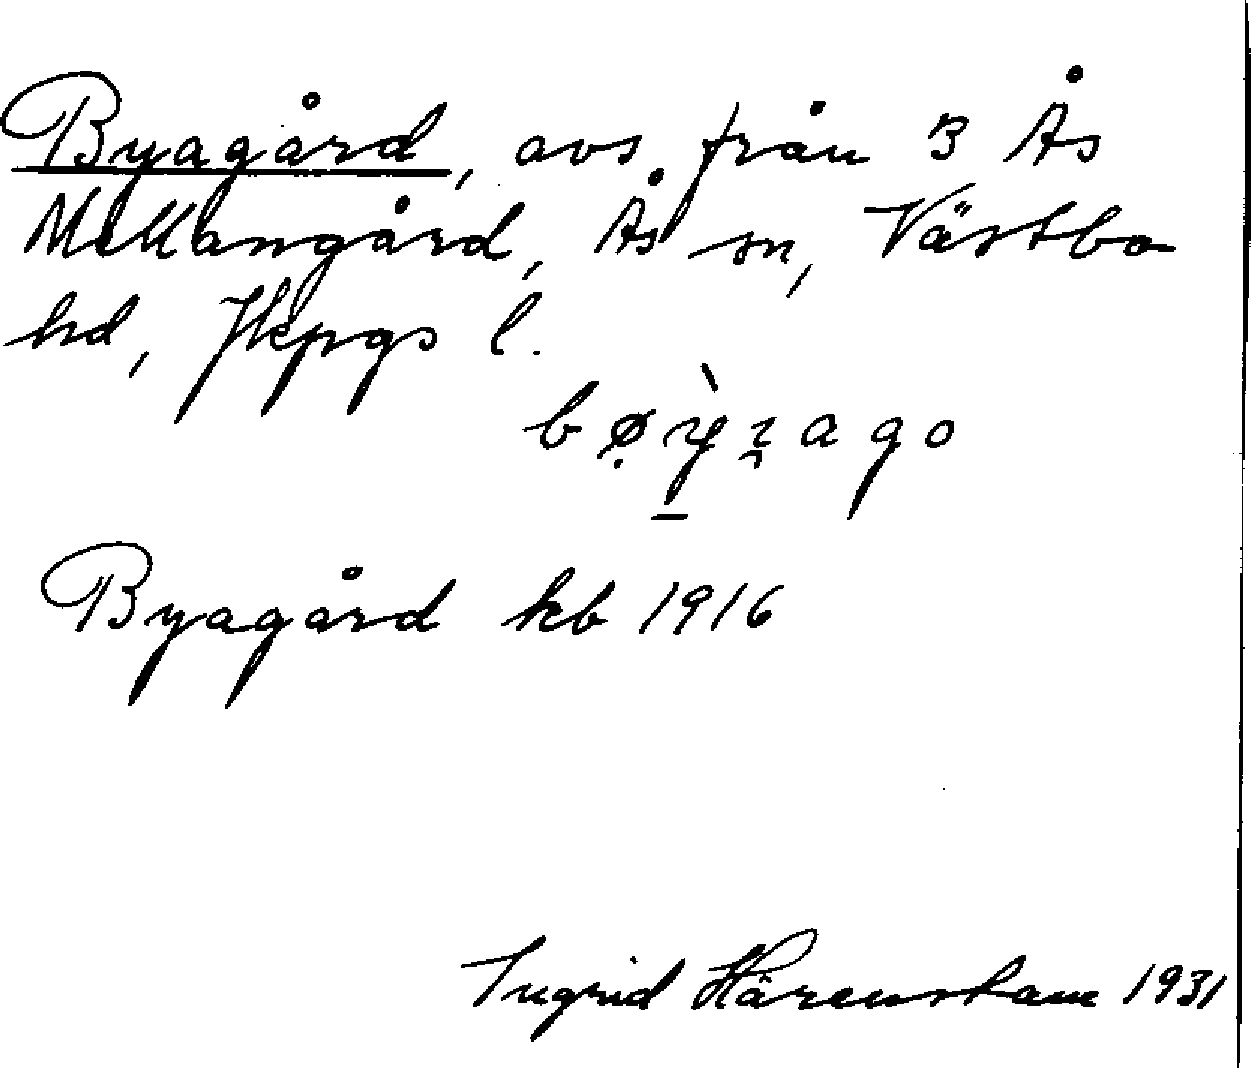 Byagård, avs. från 3 Ås
Mellangård, Ås sn, Västbo
hd, Jkpgs l.
Byagård kb 1916
Ingrid Härenstam 1931